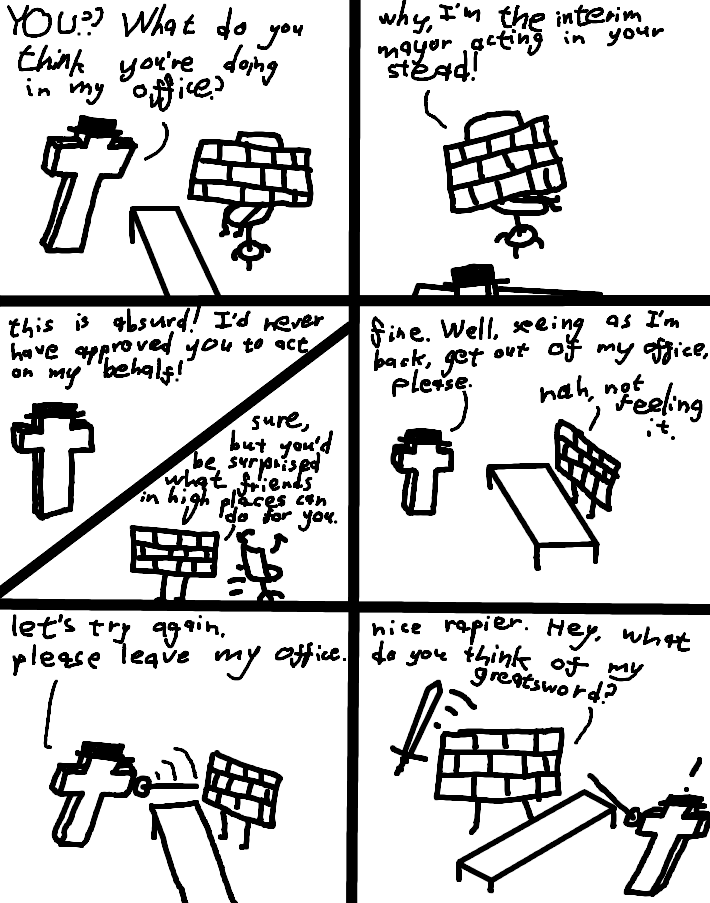 YOU?? What do you
think you're doing
in my office?
why, I'm the interim
mayor acting in your
stead!
this is absurd! I'd never
have approved you to act
on my behalf!
sure,
but you'd
be surprised
what friends
in high places can
do for you.
fine. Well, seeing as I'm
back, get out of my office,
please.
nah, not
feeling
it.
let's try again.
please leave my office.
nice rapier. Hey, what
do you think of my
greatsword?
!